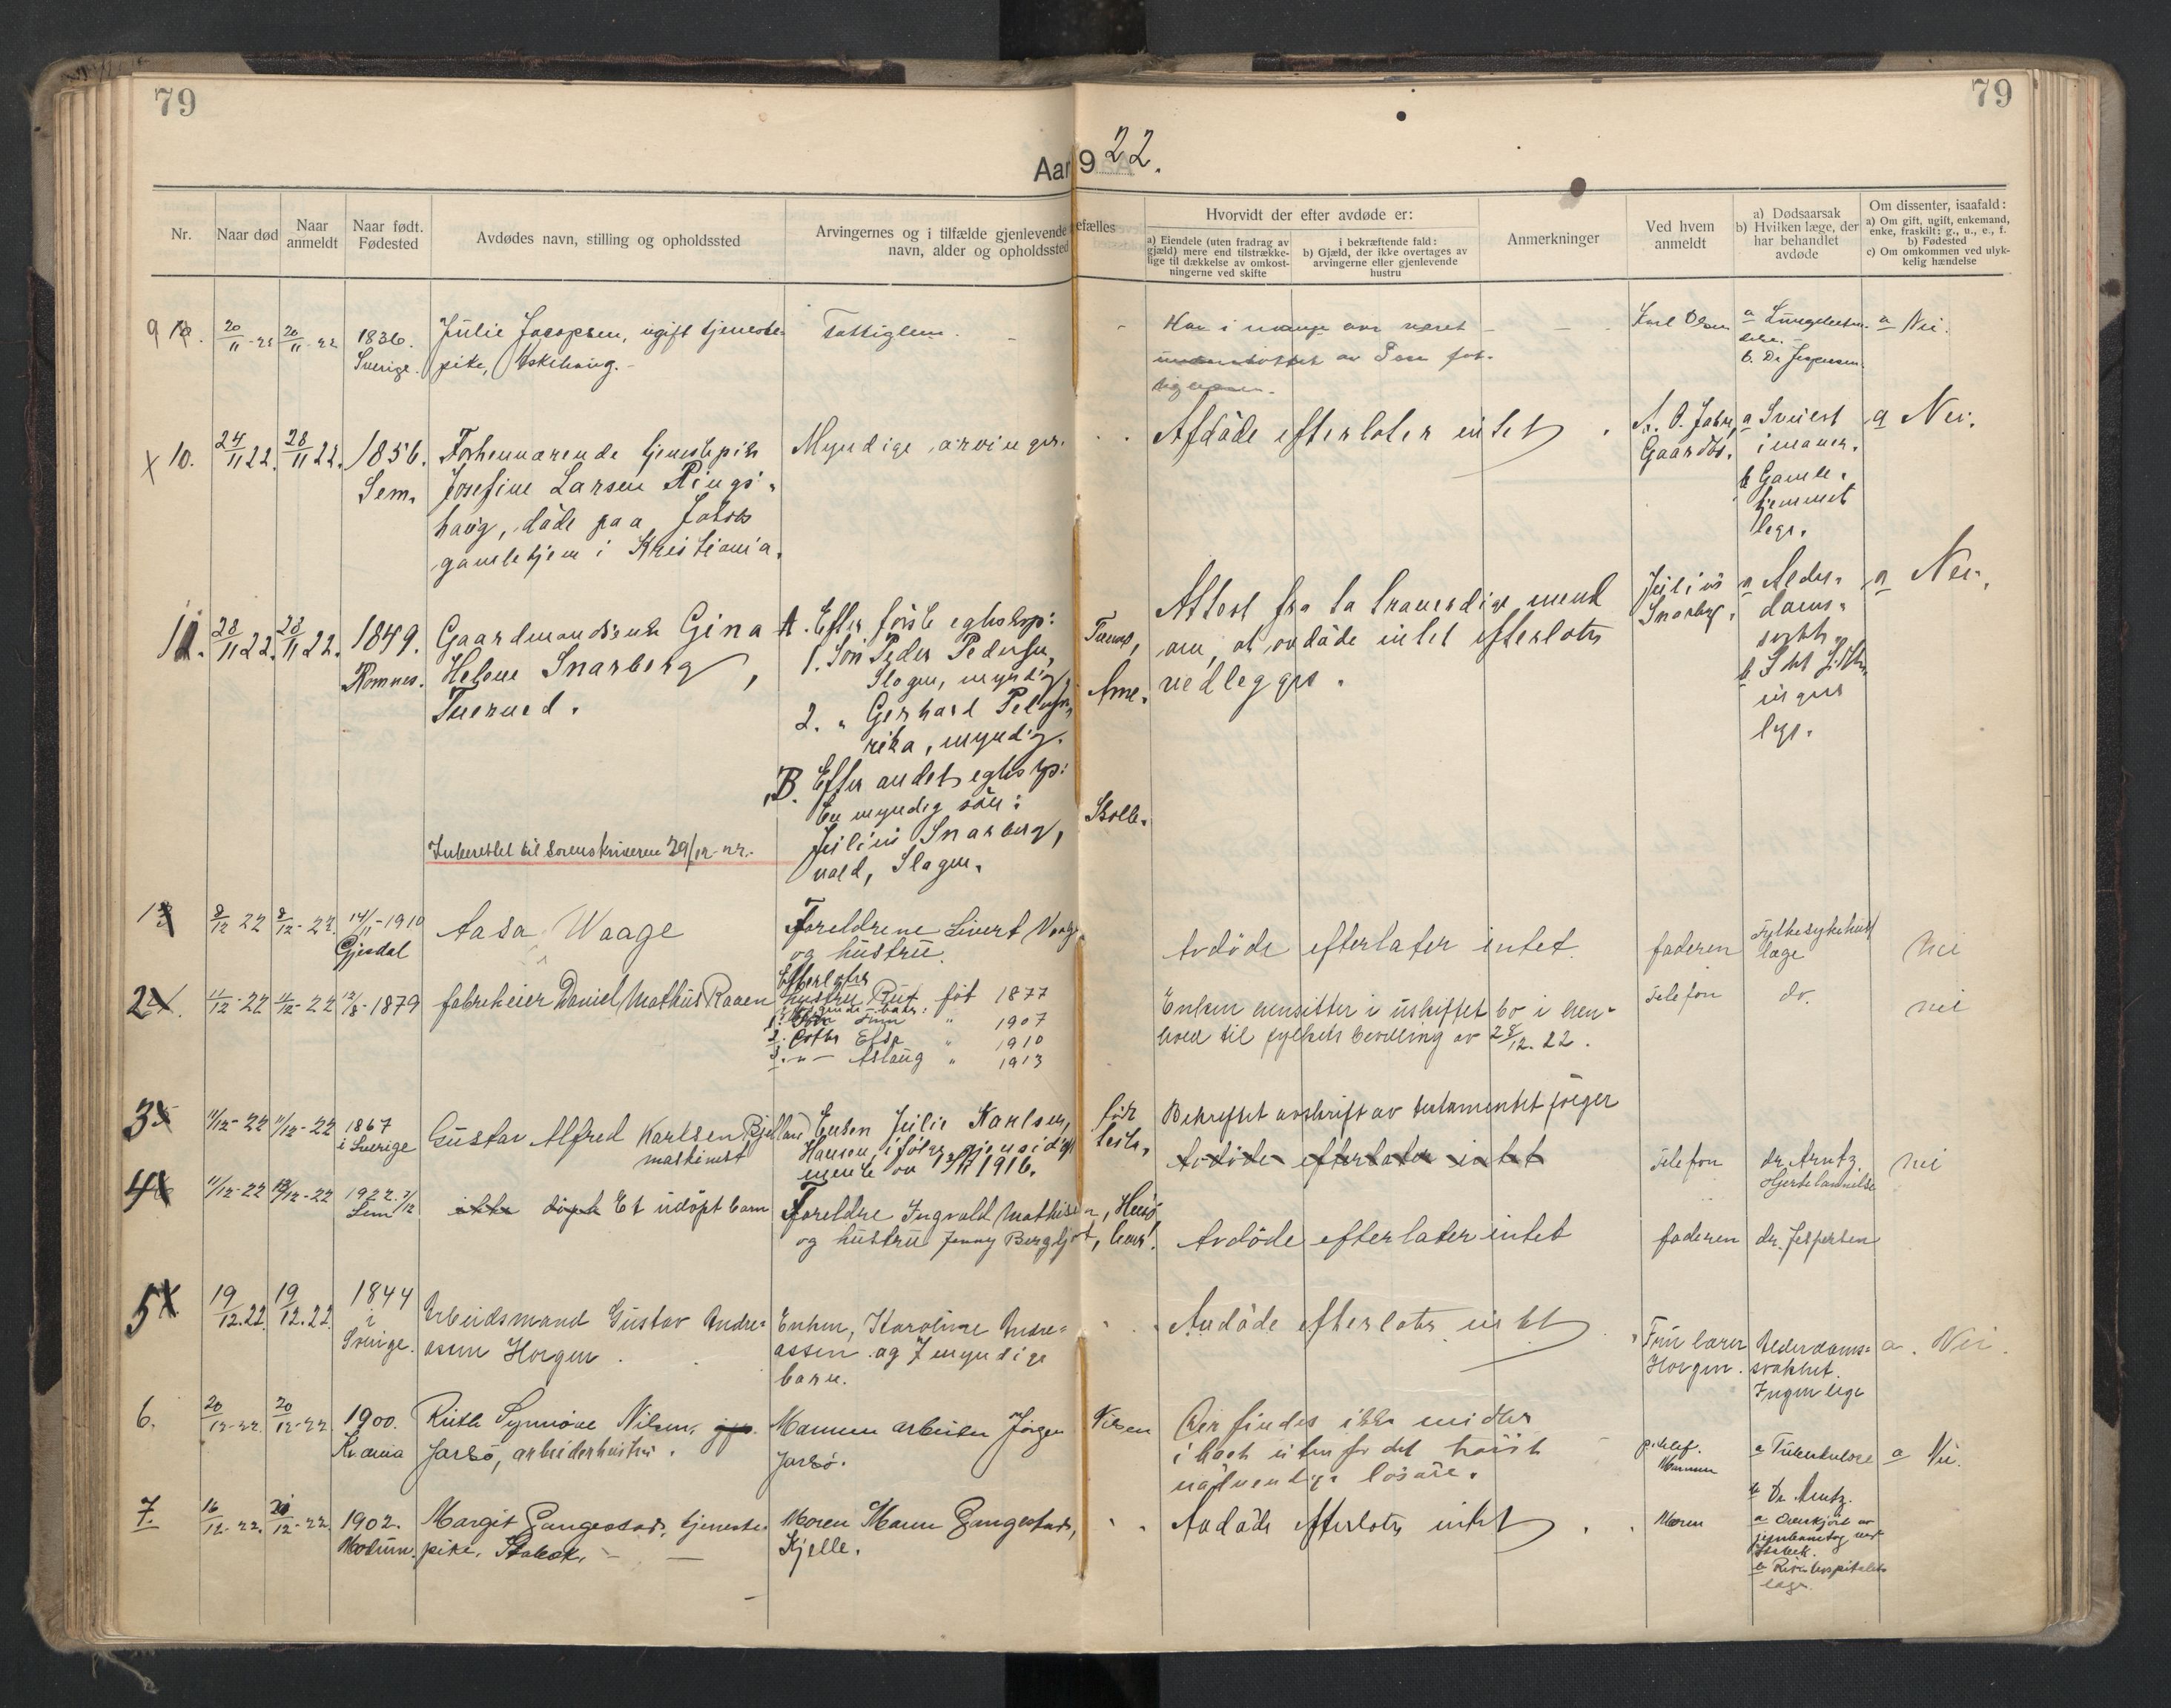 79
79
Aar 1922.
Nr.
Naar død
Naar anmeldt
Naar født. Fødested
Avdødes navn, stilling og opholdssted
Arvingernes og i tilfælde gjenlevende
navn, alder og opholdssted
efælles
Hvorvidt der efter avdøde er:
a) Eiendele (uten fradrag av
gjæld) mere end tilstrække-
lige til dækkelse av omkost-
ningerne ved skifte
i bekræftende fald:
b) Gjæld, der ikke overtages av
arvingerne eller gjenlevende
hustru
Anmerkninger
Ved hvem
anmeldt
a) Dødsaarsak
b) Hvilken læge, der
har behandlet
avdøde
Om dissenter, isaafald:
a) Om gift, ugift, enkemand,
enke, fraskilt: g., u., e., f.
b) Fødested
c) Om omkommen ved ulyk-
kelig hændelse
9
20/11-22
20/11-22
1836.
Sverige.
Julie Jacopsen, ugift tjeneste-
pike, Eskehaug.
Fattiglem.
Har i mange aar været
understøttet av Sem fat-
Karl Olsen
a Lungebetæn-
delse.
b. Dr Jespersen.
a Nei.
x 10.
24/11 22.
28/11 22.
1856.
Sem.
Forhenværende tjenestepike
Josefine Larsen Rings-
haug, döde paa Jakobs
gamlehjem i Kristiania.
Myndige arvinger.
Afdöde efterlater intet
Gaardbo.
a Svulst
i maven.
b Gamle-
hjemmets
lege.
a Nei.
11.
28/11 22.
28/11 22.
1849.
Ramnes.
Gaardmandsenke Gina
Helene Snarberg,
Tverved.
A. Efter förste egteskap:
1. Sön Peder Pedersen, Tuerve,
Slagen, myndig.
2. " Gerhard Pedersen, Ame-
rika, myndig.
B. Efter andet egteskap:
En myndig sön:
Julius Snarberg, Stolle-
vold, Slagen.
Attest fra to troverdige mend
om, at avdöde intet efterlater
vedlegges.
Julius
Snarberg.
a Alder-
doms-
svakh.
ingen
lege.
a Nei.
Inberettet til Sorenskriveren 29/12-22.
1
8/12 22
8/12-22.
14/11-1910
Gjesdal
Aasa Waage
Foreldrene Sivert Vaage
og hustru.
Avdöde efterlater intet.
faderen
Fylkesykehus
læge
nei
2
11/12-22
11/12-22
12/8-1879
fabrikeier Daniel Mathias Raaen
Efterlater
hustru Rut föt 1877
Finn " 1907
2. Datter Elsa " 1910
3. -"- Aslaug " 1913
Enken hensitter i uskiftet bo i hen-
hold til fylkets bevilling av 28/12.22.
Telefon
do.
nei
3
11/12-22
11/12-22
1867
i Sverige
Gustav Alfred Karlsen Bjelland
maskinist
Enken Julie Karlsen, föt
Hansen, ifölge gjensidigt testa-
mente av 13/7 1916.
Bekreftet avskrift av testamentet föger
Avdöde efterlater intet
Telefon
dr. Arntz.
Hjertelammelse
nei
4
11/12-22
12/12-22
1922. 7/12
Sem
ikke döpt Et udöpt barn
Foreldre Ingvald Mathisen,
og hustru Jenny Bergljot,
Avdöde efterlater intet
faderen
dr. Jespersen
5
19/12.22.
19/12.22.
1844
i
Sverige.
Arbeidsmand Gustav Andre-
assen Horgen.
Enken, Karoline Andre-
assen og 7 myndige
barn.
Avdöde efterlater intet
Fru lærer
Horgen.
Alderdoms-
svakhet.
Ingen lege
a. Nei.
6.
20/12-22.
20/12-22
1900.
Kr.ania
Ruth Synnöve Nilsen,
Jarlsö, arbeiderhustru.
Mannen arbeider Jörgen Nilsen
Jarlsö.
Der findes ikke midler
i boet uten for det høist
nødvendige løsøre.
p. telef.
Mannen
a Tuberkulose
b Dr. Arntz.
a Nei.
7.
16/12-22.
20/12-22
1902.
Modum.
Margit Gungestad, tjeneste-
pike, Stabek.
Moren Maren Gungestad,
Kjelle.
Avdöde efterlater intet
Moren
a Overkjört av
jernbanetog ved
Stabek.
b Rikshospitalets
læge.